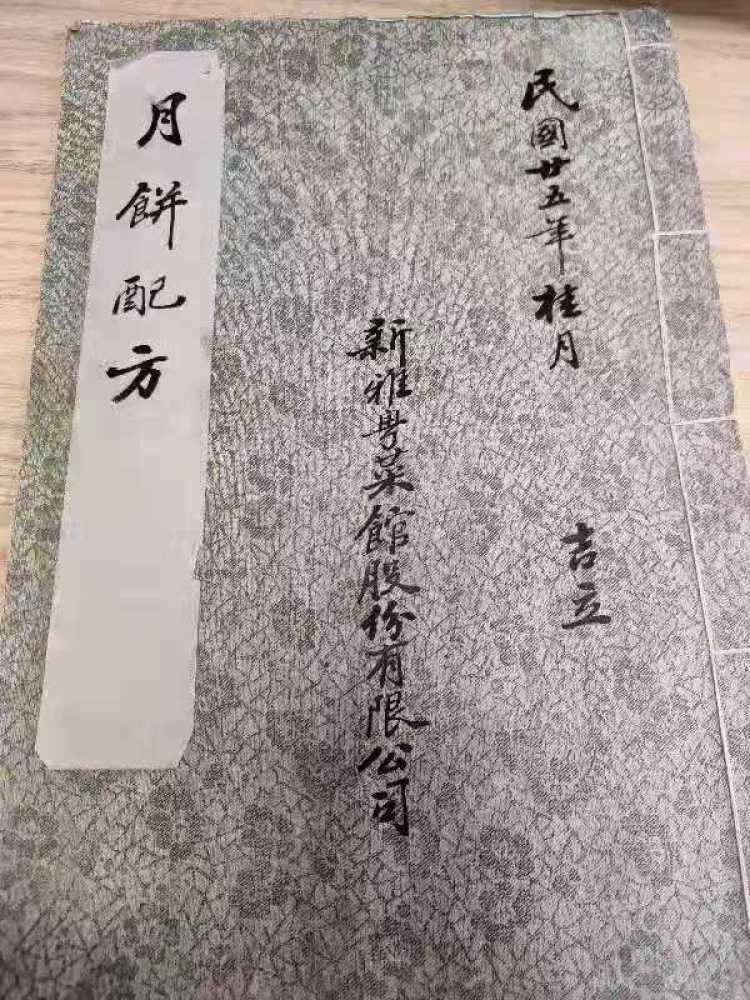 民國廿五年桂月
吉立
新雅粤菜館股份有限公司
月餅配方